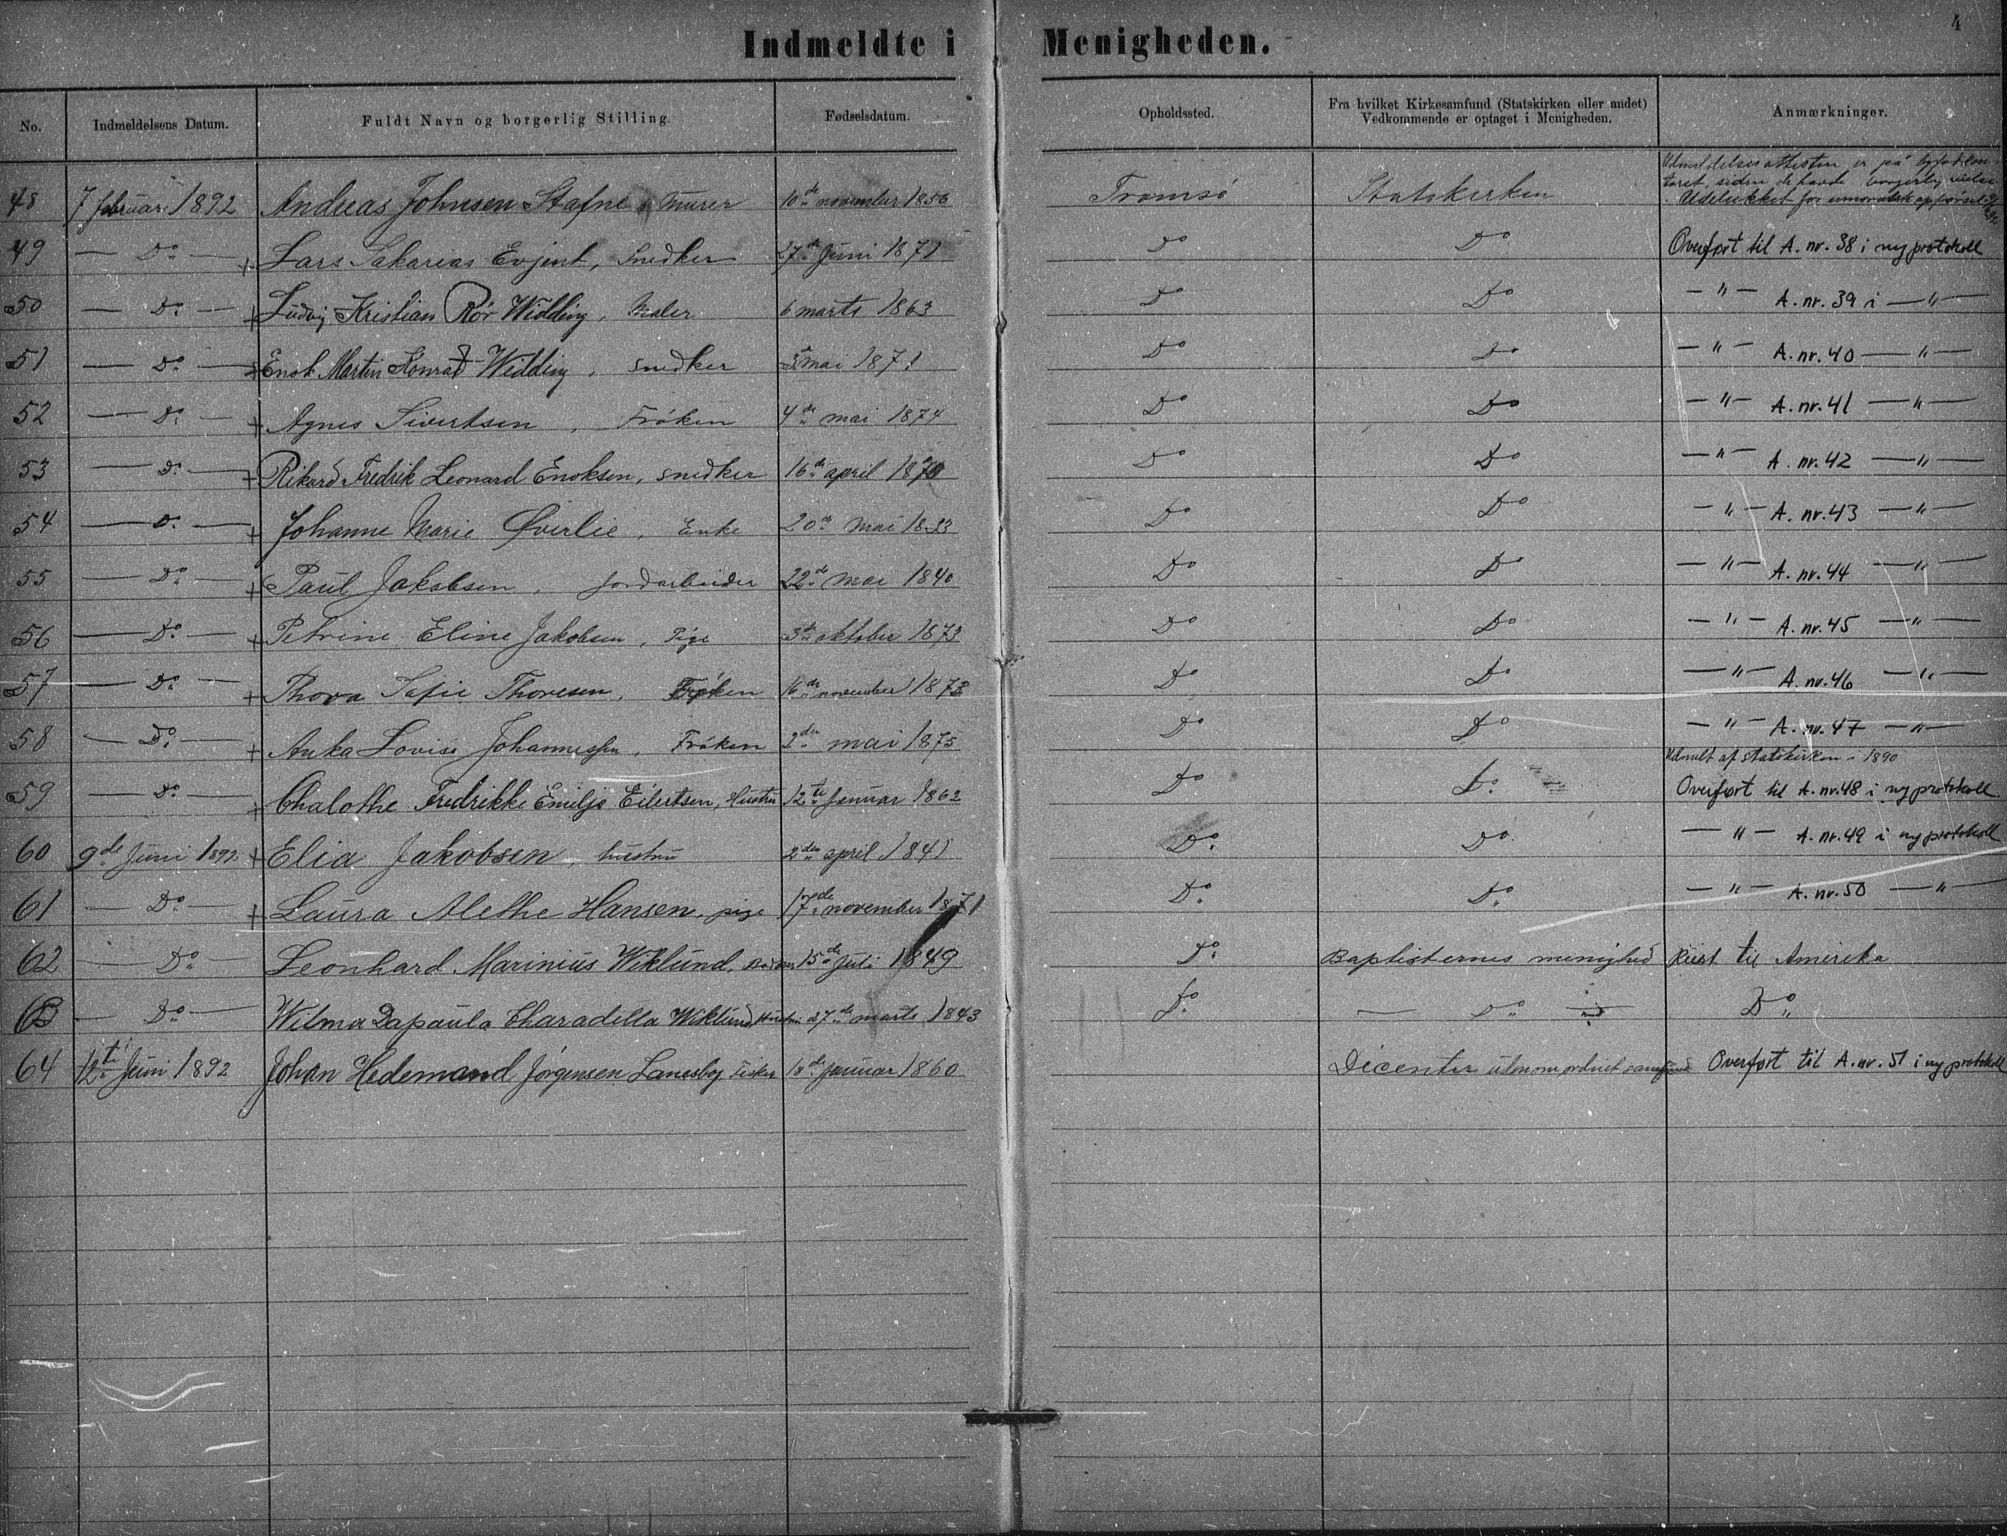 4
Indmeldte i Menigheden.
No. Indmeldelsens Datum. Fuldt Navn og borgerlig Stilling. Fødselsdatum. Opholdssted. Fra hvilket Kirkesamfund (Statskirken eller andet) Vedkommende er optaget i Menigheden. Anmærkninger.
Udmeldelsesattesten er på byfodkon-
toret, siden de havde borgerlig vielse
48 7 februar 1892 Andreas Johnsen Stafne Murer 10de november 1856 Tromsø Statskirken Udelukket for umoralsk opførsel
49 — Do — + Lars Sakarias Evjent, Snedker 27de Juni 1871 Do Do Overført til A. nr. 38 i ny protokoll
50 — Do — + Ludvig Kristian Rør Widding, Maler 6 marts 1863 Do Do — " — A. nr. 39 i — " —
51 — Do — + Enok Martin Konrad Widding, snedker 3 mai 1871 Do Do — " — A. nr. 40 — " —
52 — Do — + Agnes Sivertsen, Frøken 4de mai 1874 Do Do — " — A. nr. 41 — " —
53 — Do — + Rikard Fredrik Leonard Enoksen, snedker 16de april 1870 Do Do — " — A. nr. 42 — " —
54 — Do — + Johanne Marie Øverlie, Enke 20de mai 1833 Do Do — " — A. nr. 43 — " —
55 — Do — + Paul Jakobsen, Jordarbeider 22de mai 1840 Do Do — " — A. nr. 44 — " —
56 — Do — + Petrine Eline Jakobsen, Pige 3de oktober 1873 Do Do — " — A. nr. 45 — " —
57 — Do — + Thora Sofie Thoresen, Frøken 16de november 1873 Do Do — " — A. nr. 46 — " —
58 — Do — + Anka Lovise Johannessen, Frøken 2den mai 1875 Do Do — " — A. nr. 47 — " —
Udmelt af statskirken i 1890
59 — Do — + Chalothe Fredrikke Emilje Eilertsen, Hustru 12te Januar 1862 Do Do Overført til A. nr. 48 i ny protokoll
60 9de Juni 1892 + Elia Jakobsen, hustru 2den april 1841 Do Do — " — A. nr. 49 i ny protokoll
61 — Do — + Laura Alethe Hansen, pige 17de november 1871 Do Do — " — A. nr. 50 — " —
62 — Do — Leonhard Marinius Wiklund, 15de Juli 1849 Do Baptisternes menighed Reist til Amerika
63 — Do — Wilma Dapaula Charadella Wiklund, Hustru 27de marts 1843 Do — Do — Do
64 12te Juni 1892 Johan Hedemand Jørgensen Lanesbog Fisker 18de Januar 1860 Dicenter utenom ordnet samfund Overført til A. nr. 51 i ny protokoll